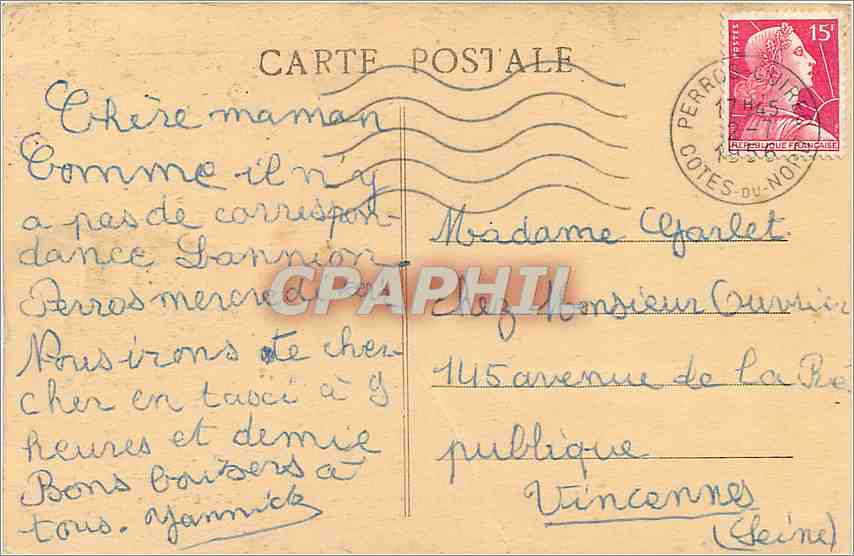 CARTE POSTALE
Chère maman
Comme il n'y
a pas de correspon-
dance Lannion-
Perros mercredi
Nous irons te cher-
cher en taxi à 9
heures et demie
Bons baisers à
tous. Yannick
POSTES
15F
REPUBLIQUE FRANÇAISE
PERROS-GUIREC
17H45
2-7
1956
COTES-DU-NORD
Madame Garlet
chez Monsieur Ouvrier
145 avenue de la Ré
publique
Vincennes
(Seine)
CPAPHIL